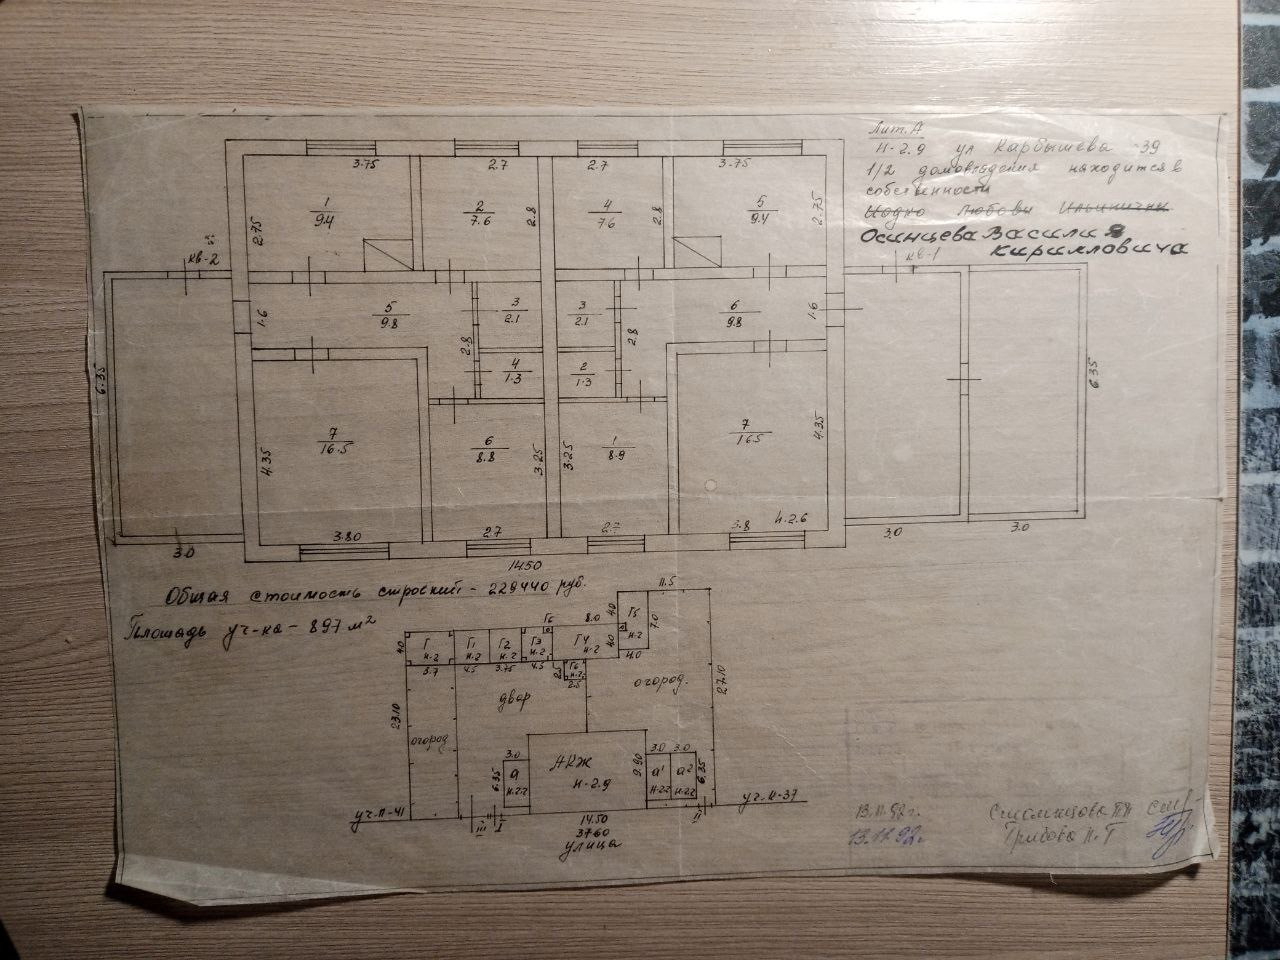 Лит. А
Н-2.9 ул Карбышева -39
1/2 домовладения находится в
собственности
Иодко Любови Ильинични
Осинцева Василия
Кирилловича
кв-2
кв-1
3.75
2.7
2.7
3.75
1
9.4
2.75
2
7.6
2.8
4
7.6
2.8
5
9.4
2.75
1.6
5
9.8
2.8
3
2.1
3
2.1
2.8
6
9.8
1.6
4
1.3
2
1.3
6.35
6.35
7
16.5
4.35
6
8.8
3.25
3.25
1
8.9
7
16.5
4.35
3.0
3.80
2.7
2.7
3.8
Н.2.6
3.0
3.0
1450
Общая стоимость строений - 229440 руб.
Площадь уч-ка - 897 м2
11.5
4.0
Г5
Н-2
7.0
Г6
8.0
4.0
Г
Н-2
Г1
Н-2
Г2
Н-2
Г3
Н-2
Г4
Н-2
4.0
4.0
3.7
4.5
3.75
4.5
2.5
Г6
Н-2
2.5
двор
огород.
27.10
23.10
огород
3.0
6.35
а
Н-2.2
АКЖ
Н-2.9
9.90
3.0
3.0
а1
Н-2.2
а2
Н-2.2
6.35
уч-Н-41
III
I
14.50
II
уч-Н-37
37.60
улица
13.11.92г.
13.11.92г.
Грибова Н.Г